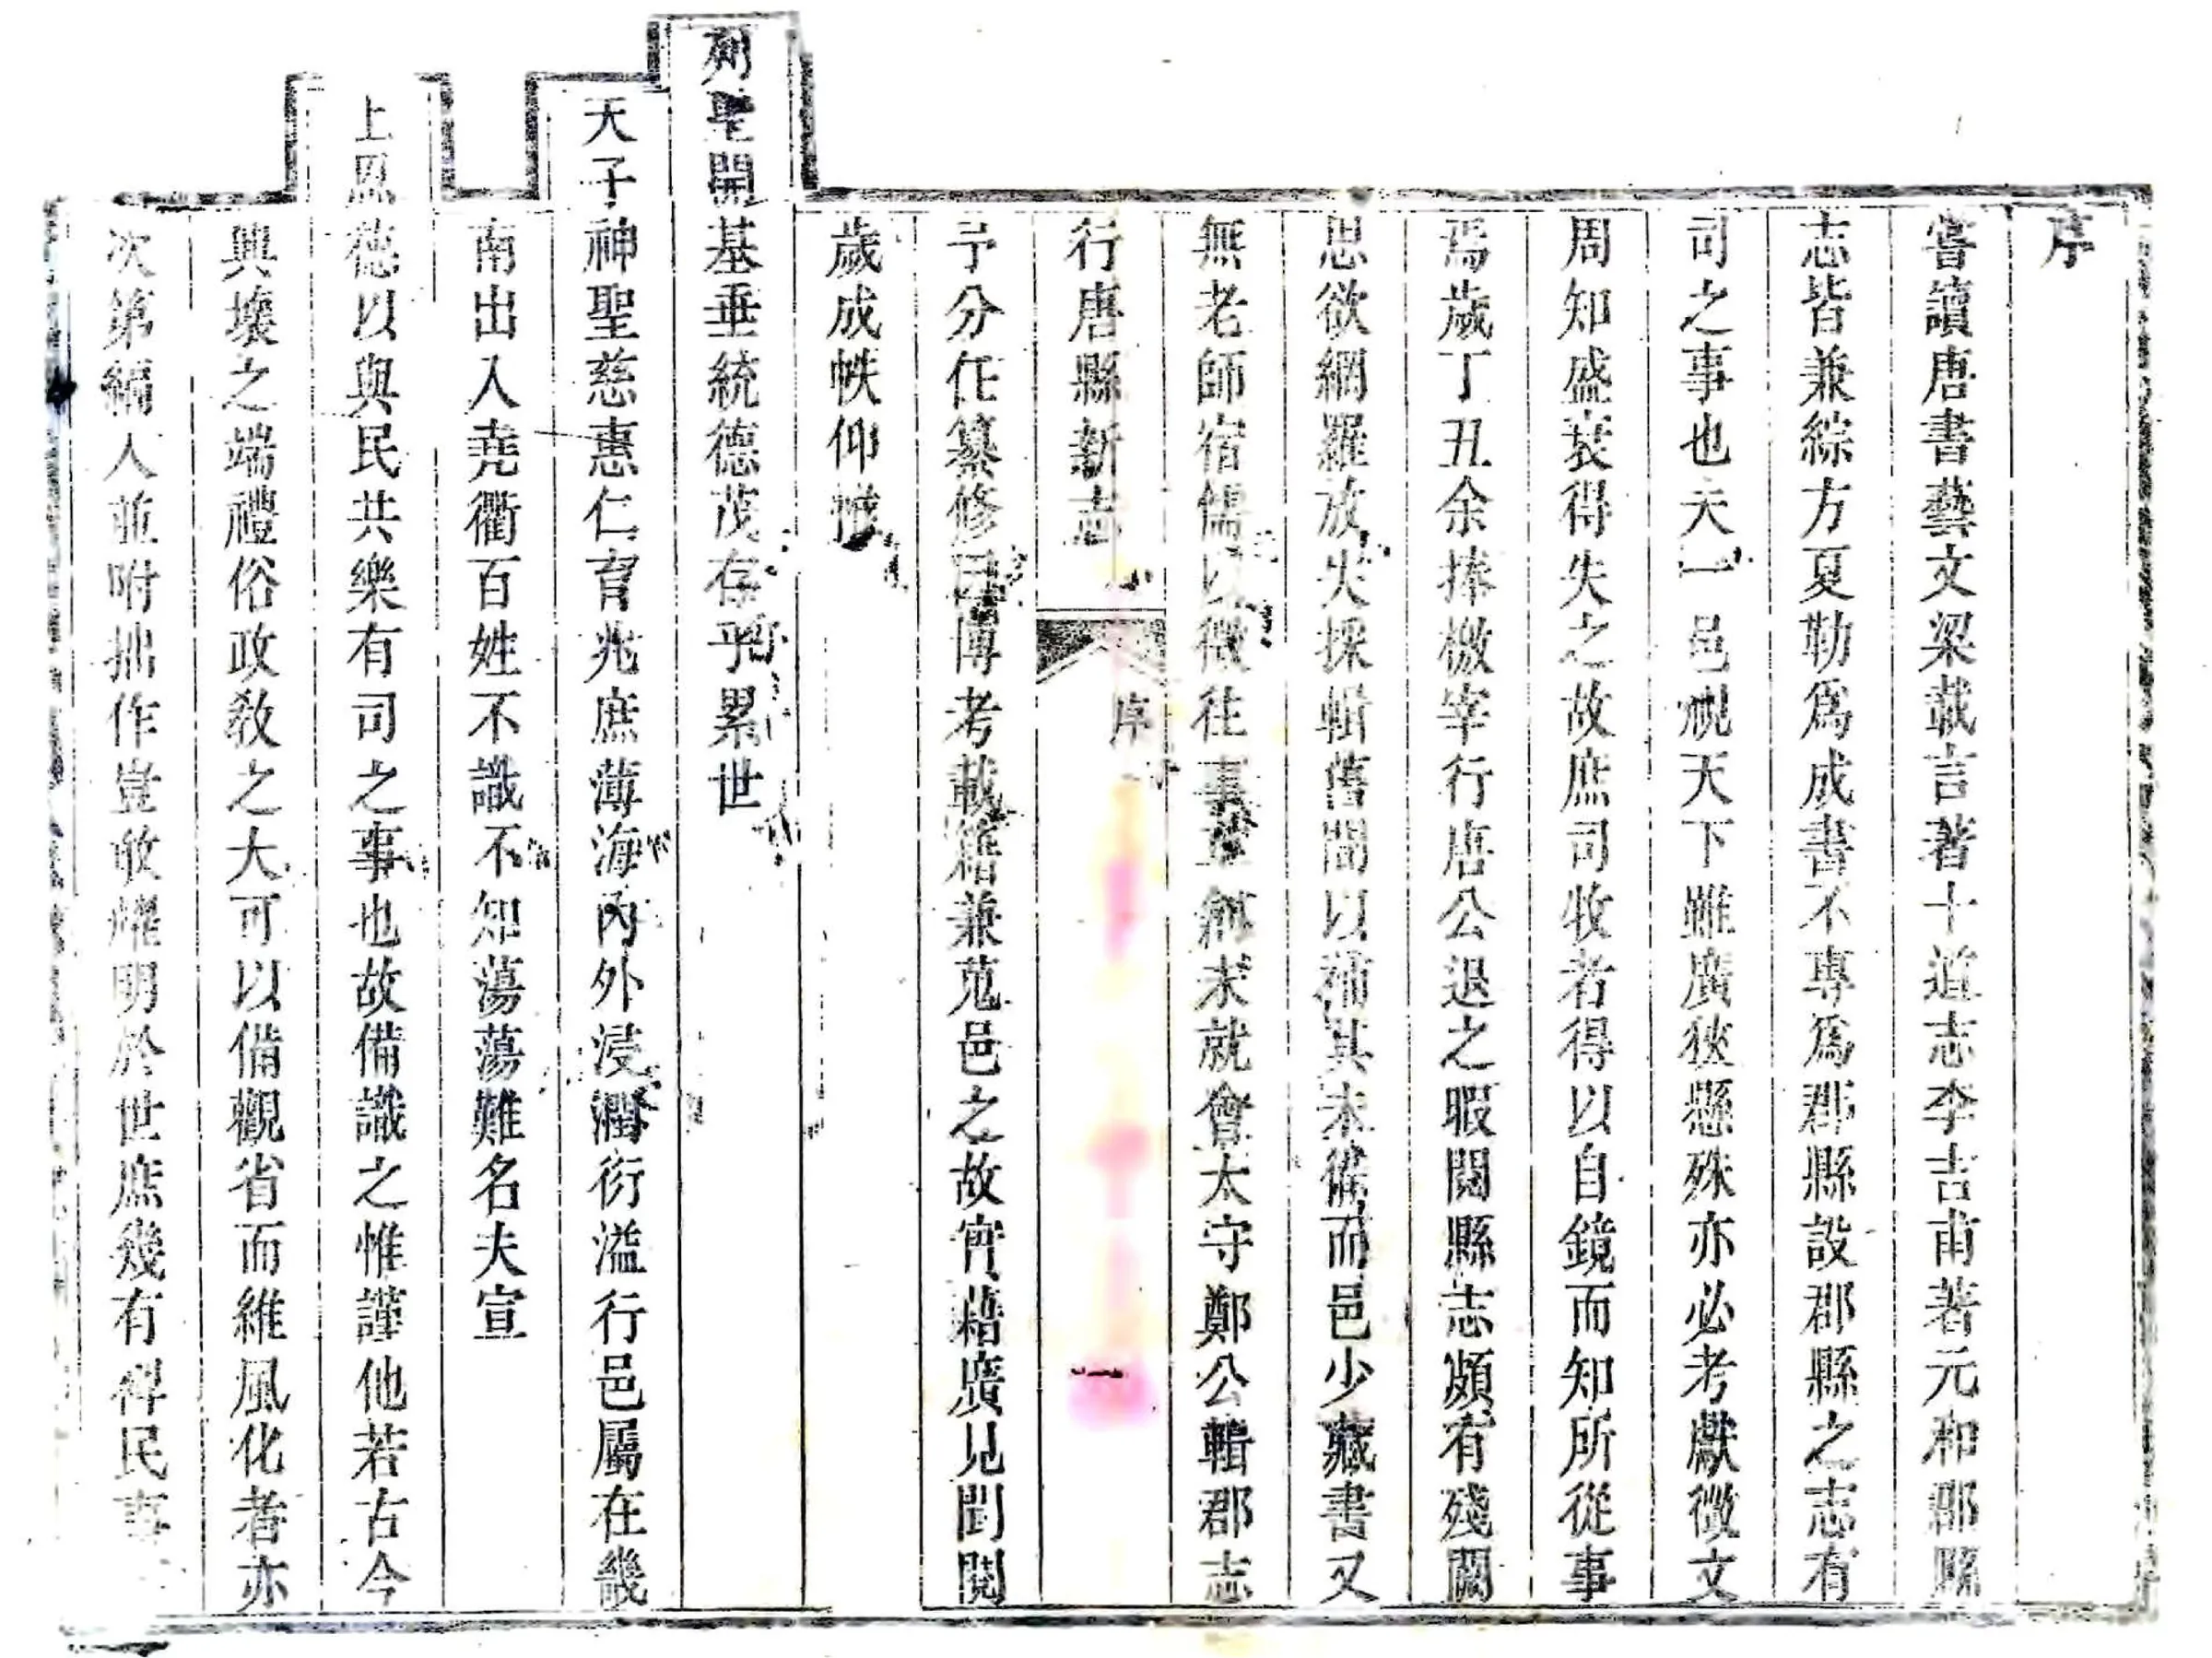 序
嘗讀唐書藝文梁載言著十道志李吉甫著元和郡縣
志皆兼綜方夏勒爲成書不專爲郡縣設郡縣之志有
司之事也夫一邑視天下雖廣狹懸殊亦必考獻徵文
周知盛衰得失之故庶司牧者得以自鏡而知所從事
焉歲丁丑余捧檄宰行唐公退之暇閱縣志頗有殘闕
思欲網羅放失採輯舊聞以補其未備而邑少藏書又
無老師宿儒以徵往事草創未就會太守鄭公輯郡志
行唐縣新志 序 一
予分任纂修因博考載籍兼蒐邑之故實藉廣見聞閱
歲成帙仰惟
列聖開基垂統德茂存乎累世
天子神聖慈惠仁育兆庶薄海內外浸潤衍溢行邑屬在畿
南出入堯衢百姓不識不知蕩蕩難名夫宣
上恩德以與民共樂有司之事也故備識之惟謹他若古今
興壞之端禮俗政敎之大可以備觀省而維風化者亦
次第編入並附拙作豈敢燿明於世庶幾有裨民事